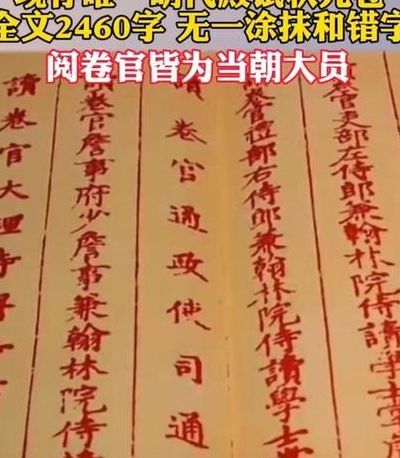 现存唯一 明代殿试状元卷
全文2460字 无一涂抹和错字
阅卷官皆为当朝大员
卷官吏部左侍郎兼翰林院侍讀學士
卷官禮部右侍郎兼翰林院侍讀學士
讀卷官通政使司通
讀卷官詹事府少詹事兼翰林院侍
讀卷官大理寺